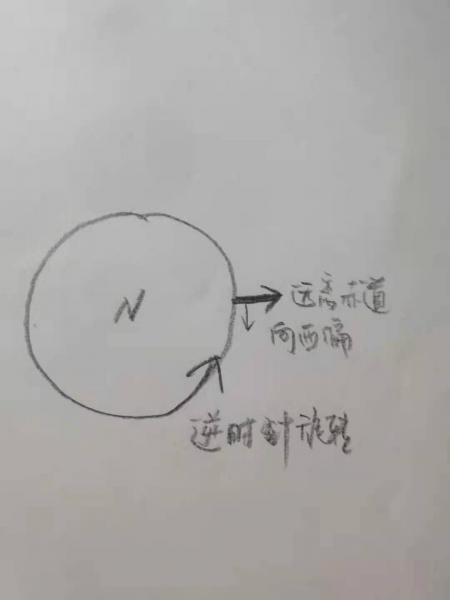 N
远离赤道
向西偏
逆时针旋转